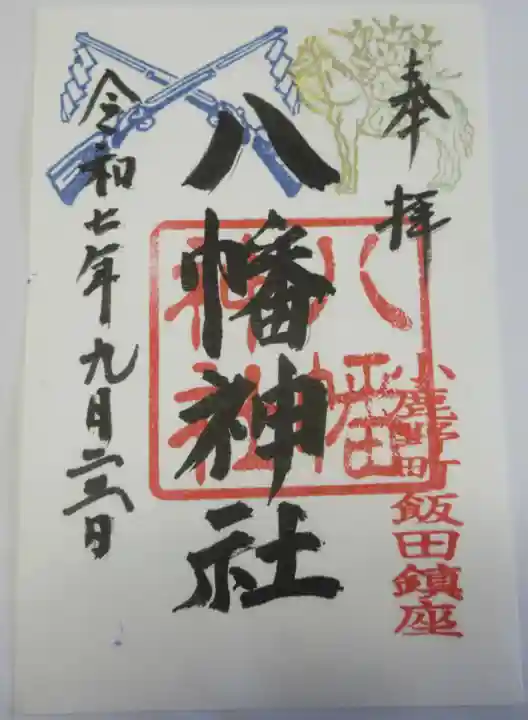 奉拝
小鹿野町飯田鎮座
八幡神社
八幡神社
令和七年九月二三日